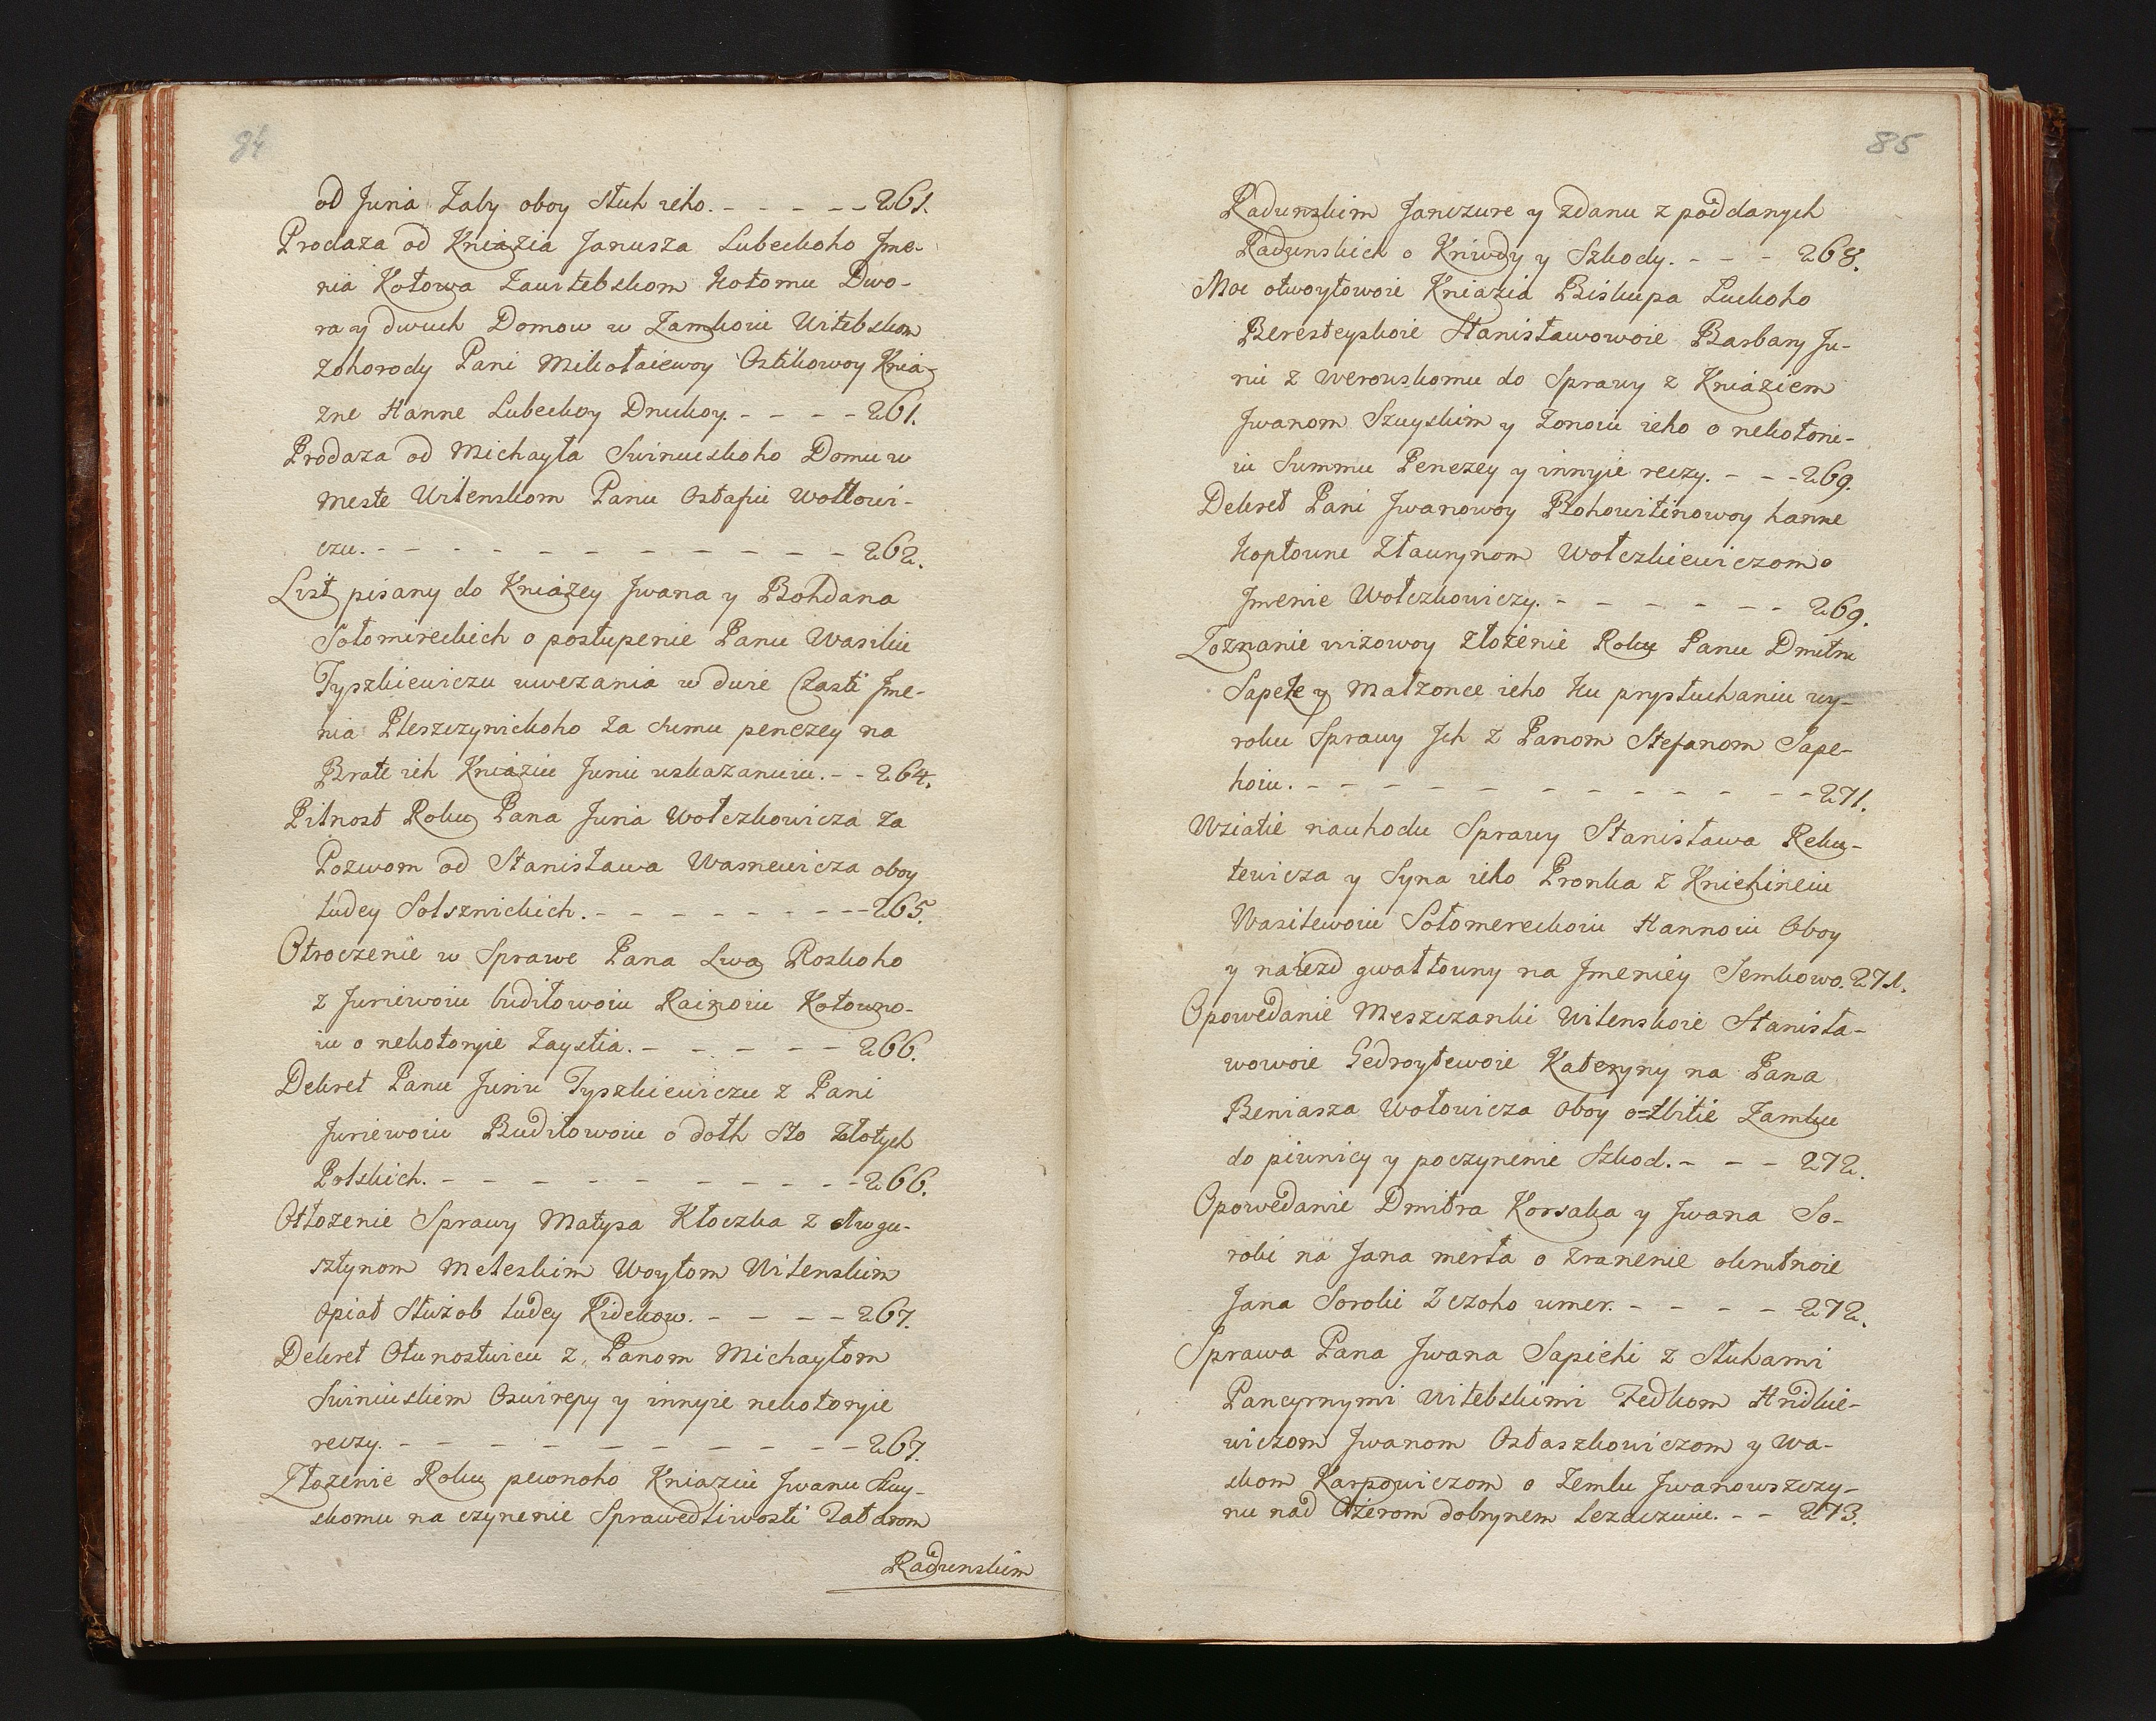 84
od Juria Zaby oboy Słuh ieho. - - - - - 261.
Prodaza od Kniazia Janusza Lubeckoho Jme-
nia Kotowa Zawitebskom Kotomu Dwo-
ra y dwuch Domow w Zamkowi Witebskom
zohorody Pani Mikołaiewoy Ostikowoy Knia-
zne Hanne Lubeckoy Druckoy. - - - - 261.
Prodaza od Michayła Swinuskoho Domu w
meste Wilenskom Panu Ostafiu Wołłowi-
czu. - - - - - - - - - - - 262.
List pisany do Kniazey Jwana y Bohdana
Sołomireckich o postupenie Panu Wasiliu
Tyszkiewiczu uwezania w dwie Czasti Jme-
nia Pleszczynickoho za sumu penezey na
Brate ich Kniaziu Juriu uskazanuiu. - - 264.
Pilnost Roku Pana Juria Wołczkowicza za
Pozwom od Stanisława Wasnewicza oboy
ludey Solsznickich. - - - - - - - - 265.
Otroczenie w Sprawe Pana Lwa Roskoho
z Juriewoiu budiłowoiu Rainoiu Kotowno-
iu o nekotoryie Zaystia. - - - - - - 266.
Dekret Panu Juriu Tyszkiewiczu z Pani
Juriewoiu Budiłowoiu o dołh Sto złotych
Polskich. - - - - - - - - - - 266.
Otłozenie Sprawy Matysa Kłoczka z Awgu-
sztynom Meleskim Woytom Wilenskim
opiat Służob ludey Kidekow. - - - - 267.
Dekret Otunostwicu z Panom Michayłom
Swiniuskiem Oswirepy y innyie nekotoryie
reczy. - - - - - - - - - - 267.
Złozenie Roku pewnoho Kniaziu Jwanu Szuy-
skomu na czynenie Sprawedliwosti Tatarom
Radunskim
85
Radunskim Janczure y zdanu z poddanych
Radunskich o Kriwdy y Szkody. - - - 268.
Moc otworytowoie Kniazia Biskupa Łuckoho
Beresteyskoie Stanisławowoie Barbary Ju-
rii z werowskomu do Sprawy z Kniaziem
Jwanom Szuyskim y Zonoiu ieho o nekotoru-
iu Summu Penezey y innyie reczy. - - - 269.
Dekret Pani Jwanowoy Bohowitinowoy hanne
Koptowne Zławrynom Wołczkiewiczom o
Jmenie Wołczkowiczy. - - - - - - 269.
Zoznanie wizowoy złożenie Roku Panu Dmitru
Sapeze y Małzonce ieho Ku prysłuchaniu wy-
roku Sprawy Jch z Panom Stefanom Sape-
hoiu. - - - - - - - - - - - - 271.
Wziatie nauhodu Sprawy Stanisława Reku-
tewicza y Syna ieho Pronka z Knichineiu
Wasilewoiu Sołomereckoiu Hannoiu Oboy
y naiezd gwałtowny na Jmeniey Semkowo. 271.
Opowedanie Meszczanki Wilenskoie Stanisła-
wowoie Gedroytewoie Kateryny na Pana
Beniasza Wołowicza oboy o=zbitie Zamku
do piwnicy y poczynenie Szkod. - - - 272.
Opowedanie Dmitra Korsaka y Jwana So-
roki na Jana merta o zranenie okrutnoie
Jana Soroki z czoho umer. - - - - - 272.
Sprawa Pana Jwana Sapiehi z Słuhami
Pancyrnymi Witebskimi Fedkom Hridkie-
wiczom Jwanom Ostaszkowiczom y Wa-
skom Karpowiczom o Zemlu Jwanowszczy-
nu nad Ozerom dobrynem lezaczuiu. - - 273.